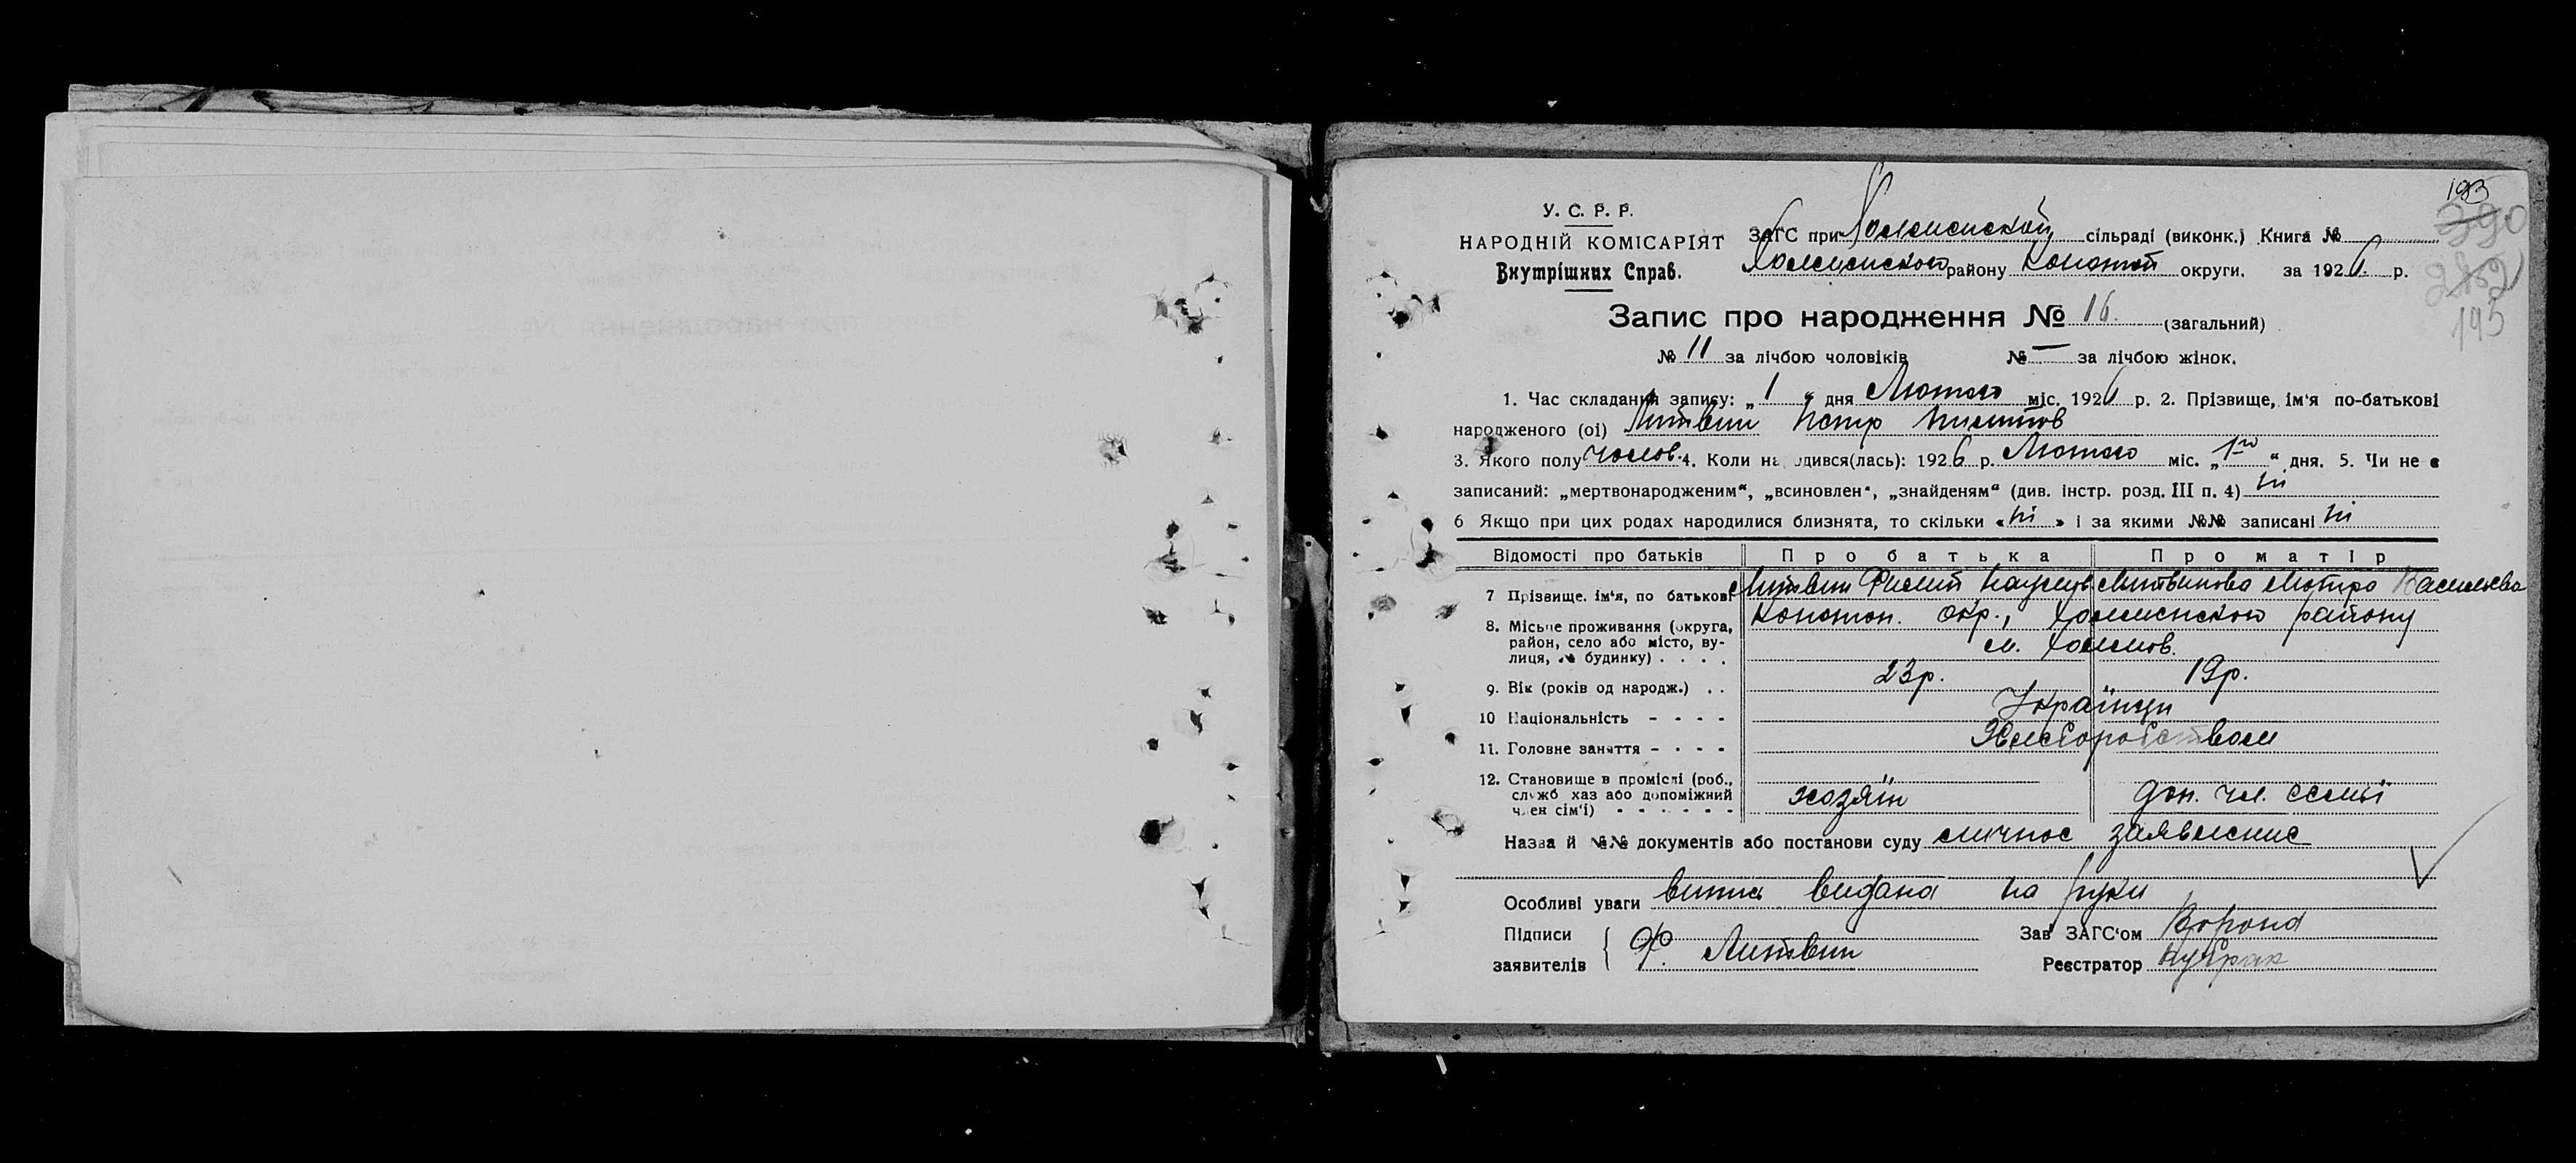 193
390
282
193
У. С. Р. Р.
НАРОДНІЙ КОМІСАРІЯТ
Внутрішних Справ.
ЗАГС при Холменской сільраді (виконк.) Книга №
Холменского району Конотоп округи. за 1926 р.
Запис про народження № 16. (загальний)
№ 11 за лічбою чоловіків № — за лічбою жінок.
1. Час складання запису: „ 1 “ дня Лютого міс. 1926 р. 2. Прізвище, ім'я по-батькові
народженого (ої) Литвин Петр
3. Якого полу чолов. 4. Коли народився(лась): 1926 р. Лютого міс. „ 1го “ дня. 5. Чи не є
записаний: „мертвонародженим“, „всиновлен“, „знайденям“ (див. інстр. розд. III п. 4) ні
6 Якщо при цих родах народилися близнята, то скільки « ні » і за якими №№ записані ні
Відомості про батьків Про батька Про матір
7 Прізвище. ім'я, по батькові Литвин Филип Наумов Литвинова Мотря Васильева
8. Місьце проживання (округа, район, село або місто, вулиця, № будинку) . . . . Конотоп. окр., Холменского району
м. Холмов.
9. Вік (років од народж.) . . 23р. 19р.
10 Національність - - - - Українци
11. Головне заняття - - - - Хлеборобством
12. Становище в промислі (роб., служб хаз або допоміжний член сім'і) - - - - - - хозяїн доп. чл. семьї
Назва й №№ документів або постанови суду личное заявление
Особливі уваги випись видана на руки
Підписи заявителів Ф. Литвин
Зав ЗАГС'ом Ворона
Реєстратор Кубрак